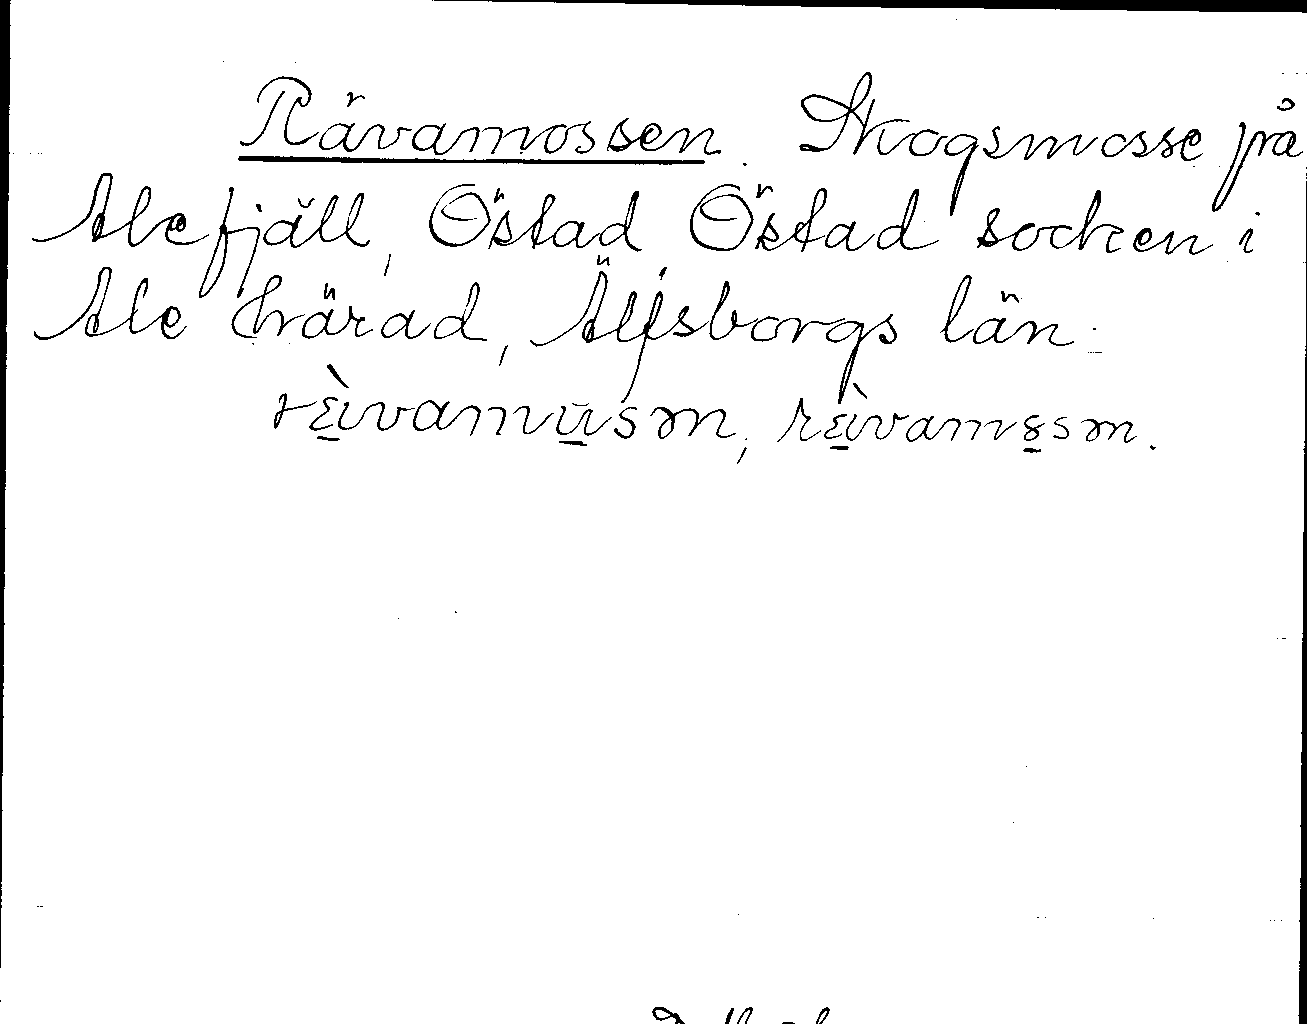 Rävamossen. Skogsmosse på
Alefjäll, Östad Östad socken i
Ale härad, Älfsborgs län.
rɛ̀vamu̲sən, rɛ̀vamsən.